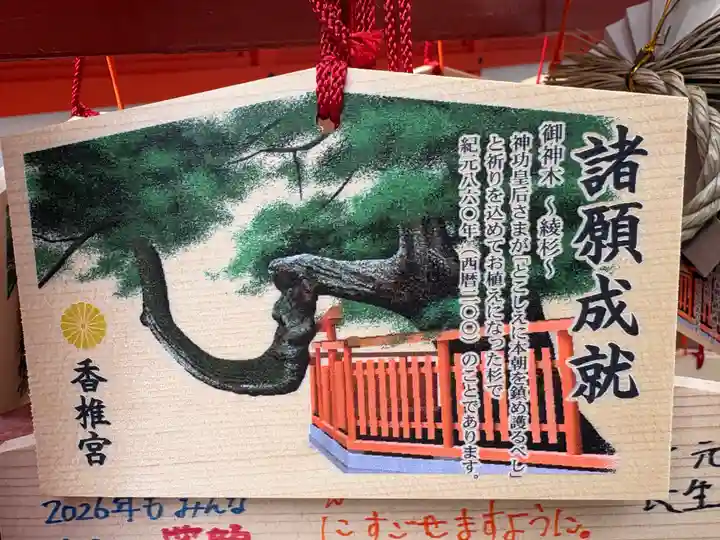 諸願成就
御神木 ～綾杉～
神功皇后さまが「とこしえに本朝を鎮め護るべし」
と祈りを込めてお植えになった杉で
紀元八六〇年(西暦二〇〇)のことであります。
香椎宮
2026年もみんな
にすごせますように。
元